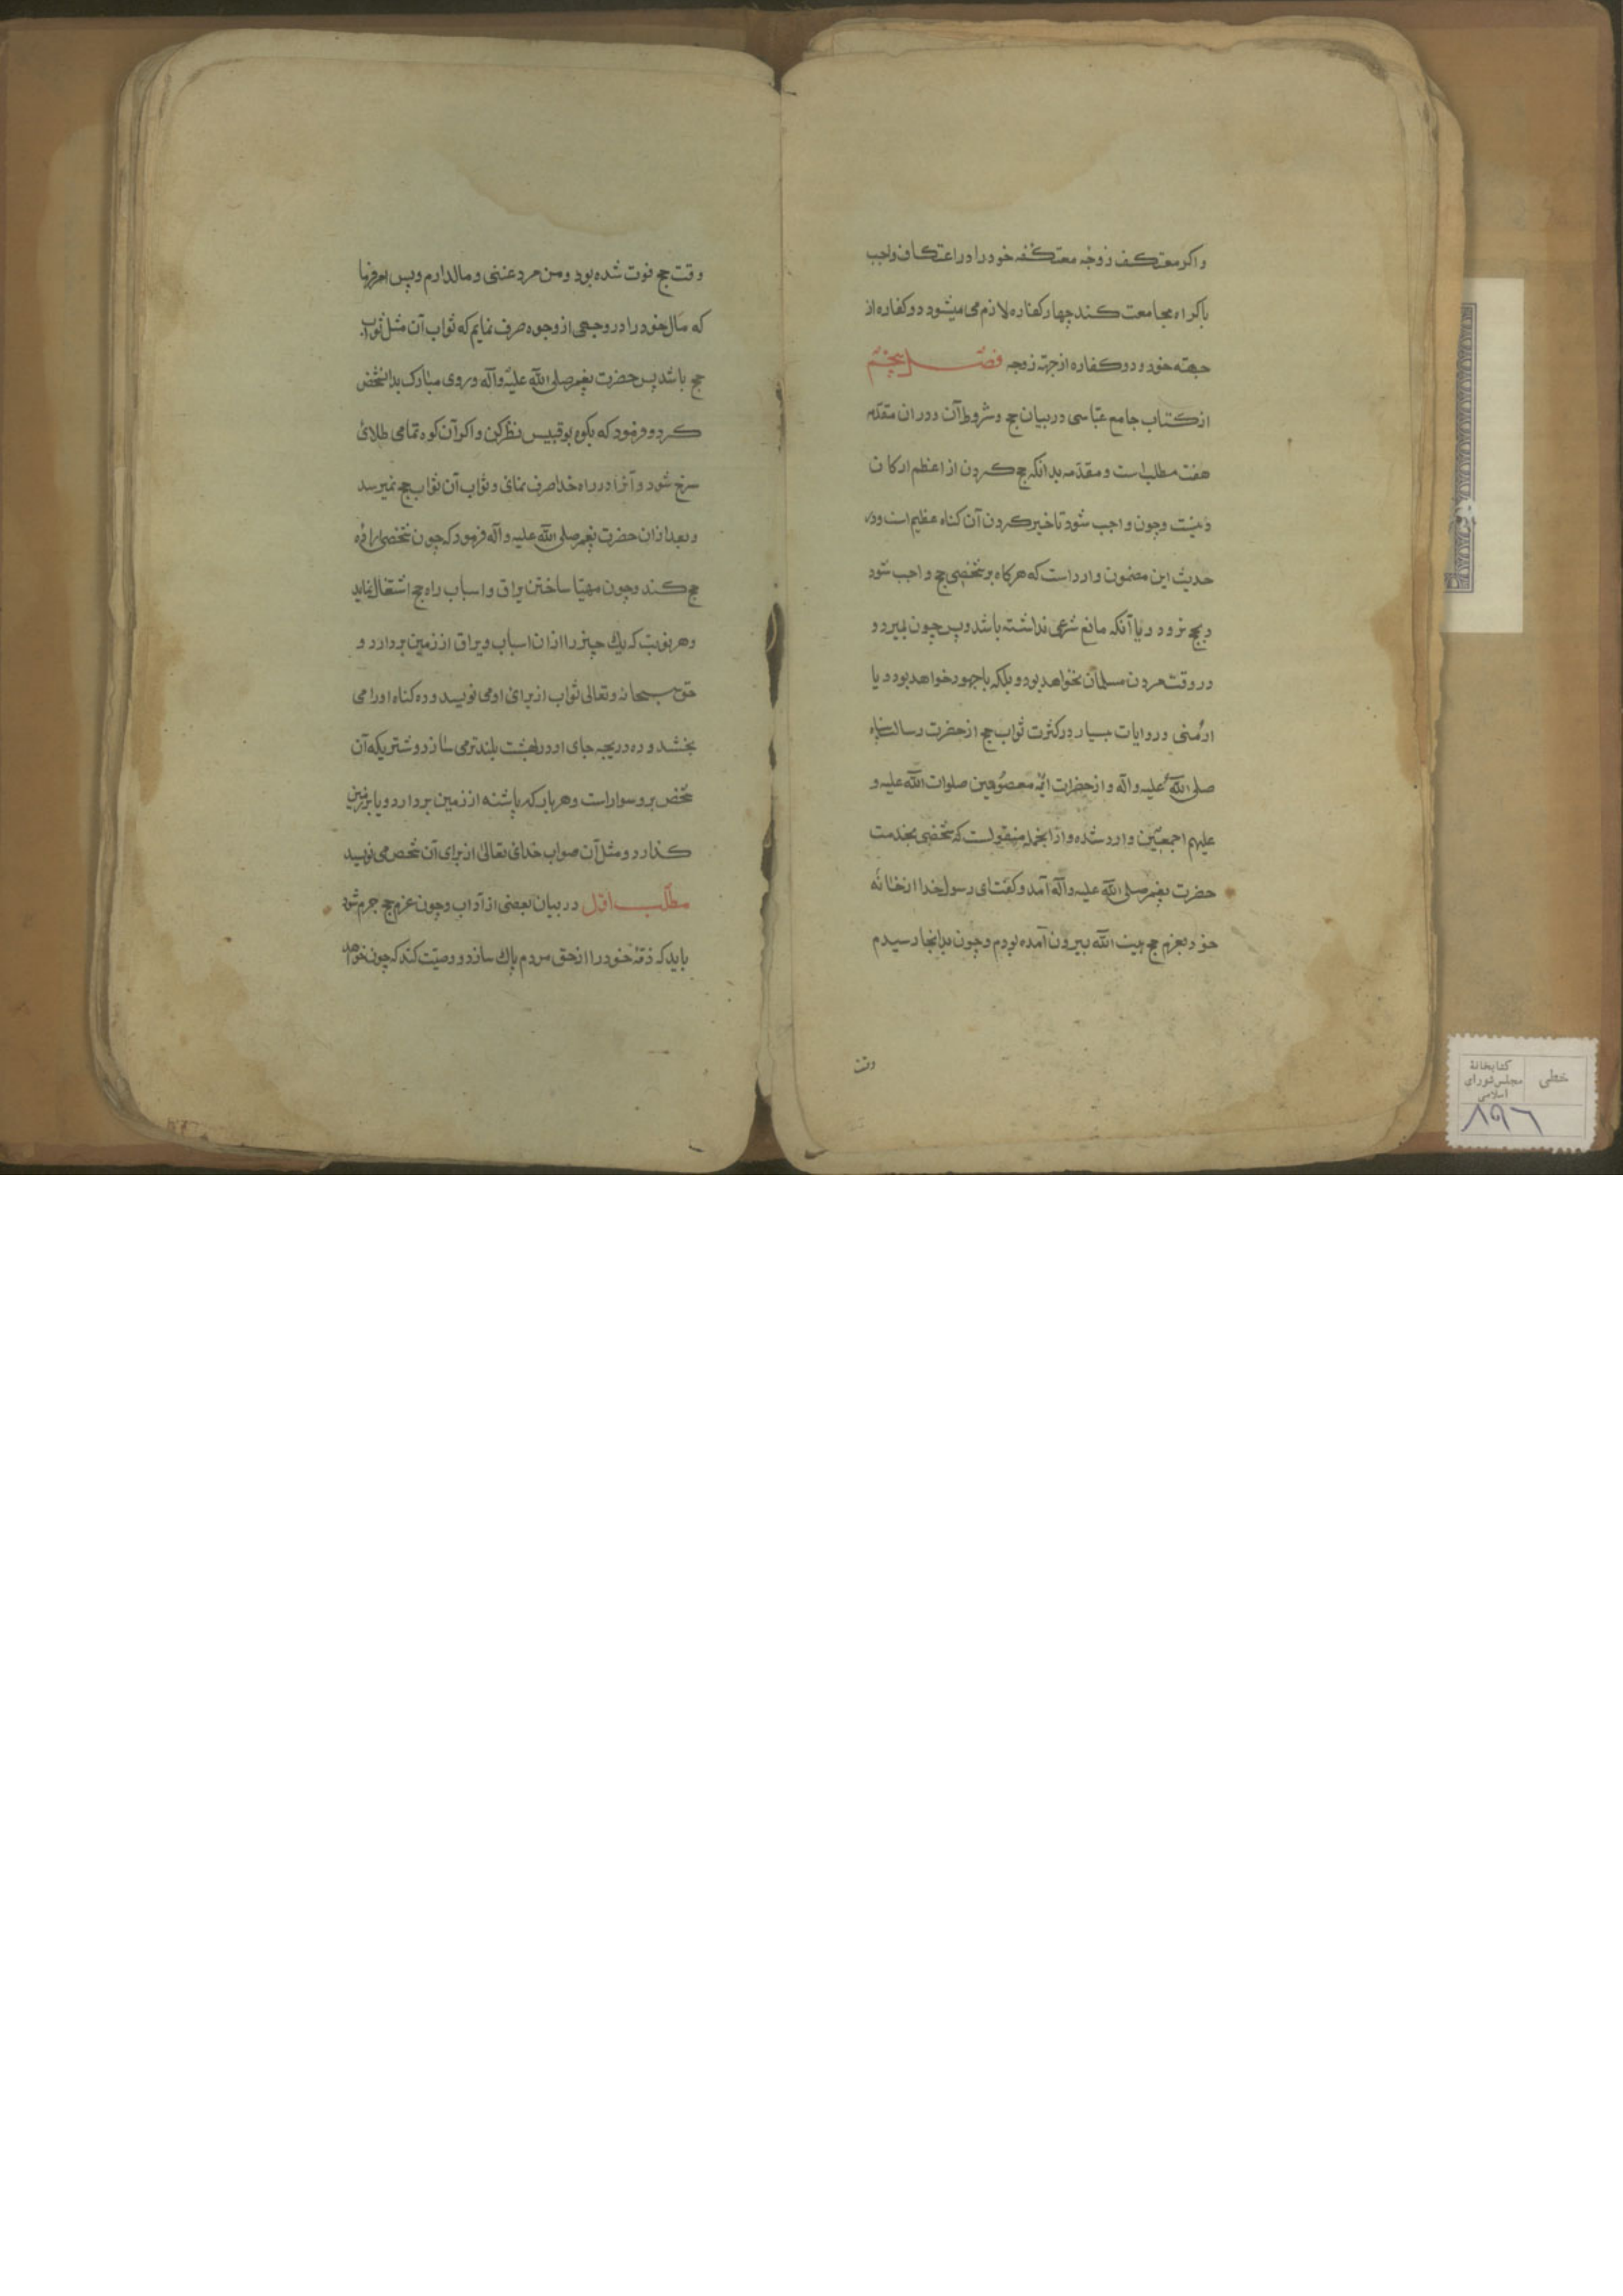 واکر معتکف زوجه معتکفه خود را در اعتکاف واجب
باکراه مجامعت کند چهار کفاره لازم می میشود دو کفاره از
جهته خود و دو کفاره از جهة زوجه فصل پنجم
از کتاب جامع عباسی در بیان حج و شروط آن و در ان مقدمه
هفت مطلب است و مقدمه بدانکه حج کردن از اعظم ارکان
دینست وچون واجب شود تاخیر کردن آن کناه عظیم است ودر
حدیث این مضمون وارد است که هرکاه بر شخصی حج واجب شود
و بحج نرود و یا آنکه مانع شرعی نداشته باشد وپس چون بمیرد و
در وقت مردن مسلمان نخواهد بود و بلکه یا جهود خواهد بود و یا
ارمنی و روایات بسیار در کثرت ثواب حج از حضرت رسالت پناه
صلی الله علیه واله و از حضرات ائمه معصومین صلوات الله علیه و
علیهم اجمعین وارد شده و از انجمله منقولست که شخصی بخدمت
حضرت پیغمبر صلی الله علیه وآله آمد وکفت ای رسول خدا از خانه
خود بعزم حج بیت الله بیرون آمده بودم وچون بدانجا رسیدم
وقت
وقت حج فوت شده بود ومن مرد غنی و مالدارم وپس امر فرما
که مال خود را در وجهی از وجوه صرف نمایم که ثواب آن مثل ثواب
حج باشد پس حضرت پیغمبر صلی الله علیه وآله وروی مبارک بدانشخص
کرد و فرمود که بکوه بوقبیس نظر کن واکر آن کوه تمامی طلای
سرخ شود و آنرا در راه خدا صرف نمائی وثواب آن بثواب حج نمیرسد
وبعد از ان حضرت پیغمبر صلی الله علیه وآله فرمود که چون شخصی اراده
حج کند وچون مهیا ساختن یراق واسباب راه حج اشتغال نماید
وهر نوبت که یك چیز را از ان اسباب ویراق از زمین بردارد و
حق سبحانه وتعالی ثواب از برای او می نویسد و ده کناه او را می
بخشد و ده دریجه جای او در بهشت بلندتر می سازد و شتریکه آن
شخص برو سوار است وهر بار که پاشنه از زمین بردارد و یا بر زمین
کذارد و مثل آن صواب خدای تعالی از برای آن شخص می نویسد
مطلب اول در بیان بعضی از آداب وچون عزم حج جزم شود
باید که ذمه خود را از حق مردم پاك سازد و وصیت کند که چون خواهد
خطی
کتابخانهٔ
مجلس شورای
اسلامی
۸۹۶